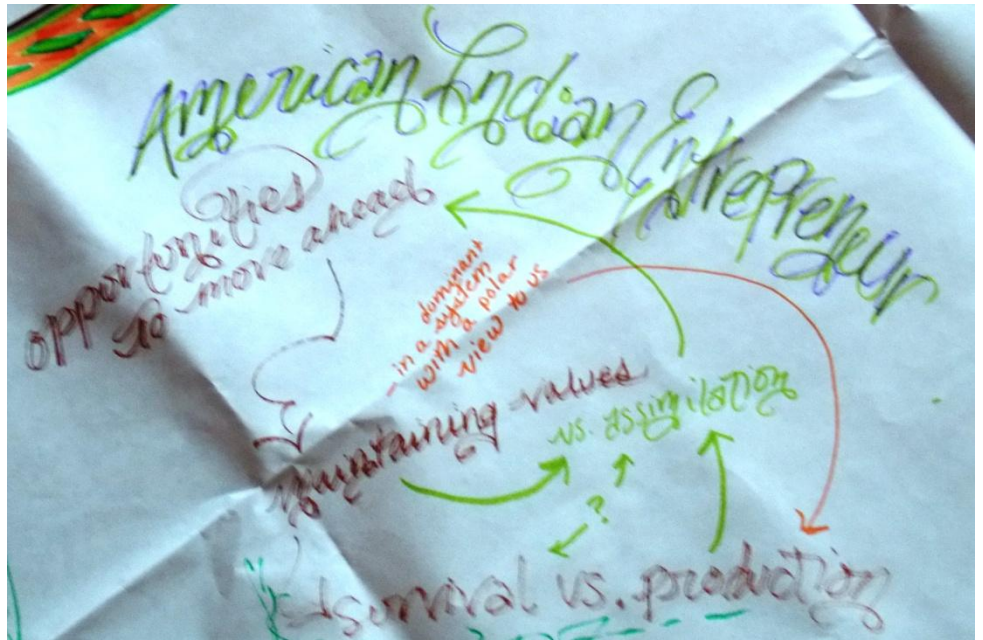 American Indian Entrepreneur
opportunities
to move ahead
- in a dominant
system
with a polar
view to us
maintaining values
vs. assimilation
?
survival vs. production